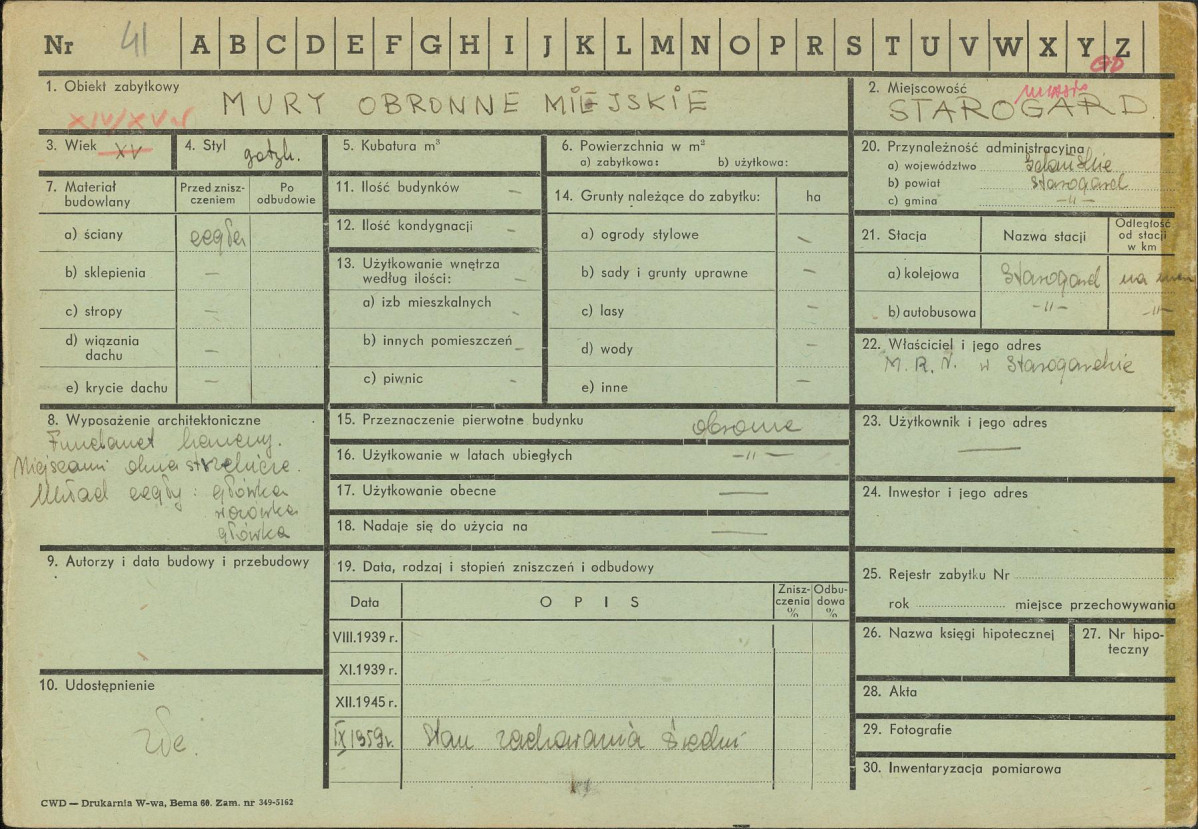 Nr 41 A B C D E F G H I J K L M N O P R S T U V W X Y Z
GD
1. Obiekt zabytkowy
MURY OBRONNE MIEJSKIE
2. Miejscowość
miasto
STAROGARD
XIV/XV w
3. Wiek XV
4. Styl gotyk.
5. Kubatura m³
6. Powierzchnia w m²
a) zabytkowa: b) użytkowa:
20. Przynależność administracyjna
a) województwo Gdańskie
b) powiat Starogard
c) gmina -"-
7. Materiał budowlany
Przed zniszczeniem
Po odbudowie
a) ściany cegła
b) sklepienia —
c) stropy —
d) wiązania dachu —
e) krycie dachu —
11. Ilość budynków —
12. Ilość kondygnacji —
13. Użytkowanie wnętrza
według ilości: —
a) izb mieszkalnych —
b) innych pomieszczeń —
c) piwnic —
14. Grunty należące do zabytku: ha
a) ogrody stylowe —
b) sady i grunty uprawne —
c) lasy —
d) wody —
e) inne —
21. Stacja
Nazwa stacji
Odległość
od stacji
w km
a) kolejowa Starogard na
b) autobusowa -"- -"-
22. Właściciel i jego adres
M. R. N. w Starogardzie
8. Wyposażenie architektoniczne
Fundament kamienny.
Miejscami okna strzelnicze.
Układ cegły: główka
wozówka
główka
15. Przeznaczenie pierwotne budynku obronne
16. Użytkowanie w latach ubiegłych -"-
17. Użytkowanie obecne —
18. Nadaje się do użycia na —
23. Użytkownik i jego adres
—
24. Inwestor i jego adres
9. Autorzy i data budowy i przebudowy
19. Data, rodzaj i stopień zniszczeń i odbudowy
Data
OPIS
Znisz-
czenia
%
Odbu-
dowa
%
VIII.1939 r.
XI.1939 r.
XII.1945 r.
IX 1959 r. Stan zachowania średni
25. Rejestr zabytku Nr
rok miejsce przechowywania
26. Nazwa księgi hipotecznej
27. Nr hipo-
teczny
28. Akta
29. Fotografie
30. Inwentaryzacja pomiarowa
10. Udostępnienie
CWD — Drukarnia W-wa, Bema 60. Zam. nr 349-5162